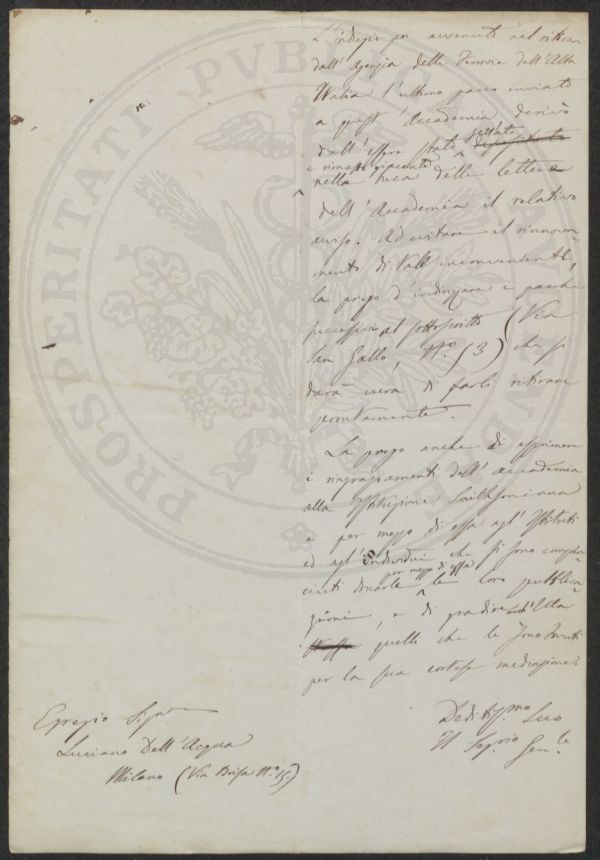 L'indugio poi avvenuto nel ritirare
dall'Agenzia delle Ferrovie dell'Alta
Italia l'ultimo pacco inviato
a quest'Accademia derivò
dall'essere stato gettato depositato
e rimasto giacente
nella buca delle lettere
dell'Accademia il relativo
avviso. Ad evitare il rinnova-
mento di tale inconveniente,
la prego d'indirizzare i pacchi
successivi al sottoscritto (Via
San Gallo, No. 53) che si
darà cura di farli ritirare
prontamente.
La prego anche di esprimere
i ringraziamenti dell'Accademia
alla Istituzione Smithsoniana
e per mezzo di essa agl'Istituti
ed agl'individui che si sono compia-
per mezzo di essa
ciuti donarle le loro pubblica-
zioni, e di gradire anch'Ella
quelli che le sono dovuti
per la sua cortese mediazione.
Dedittss.mo Suo
Il Seg.rio Gen.le
Egregio Sign.re
Luciano Dell'Acqua
Milano (Via Brisa No. 15.)
PROSPERITATI PVBLICAE AVGENDAE